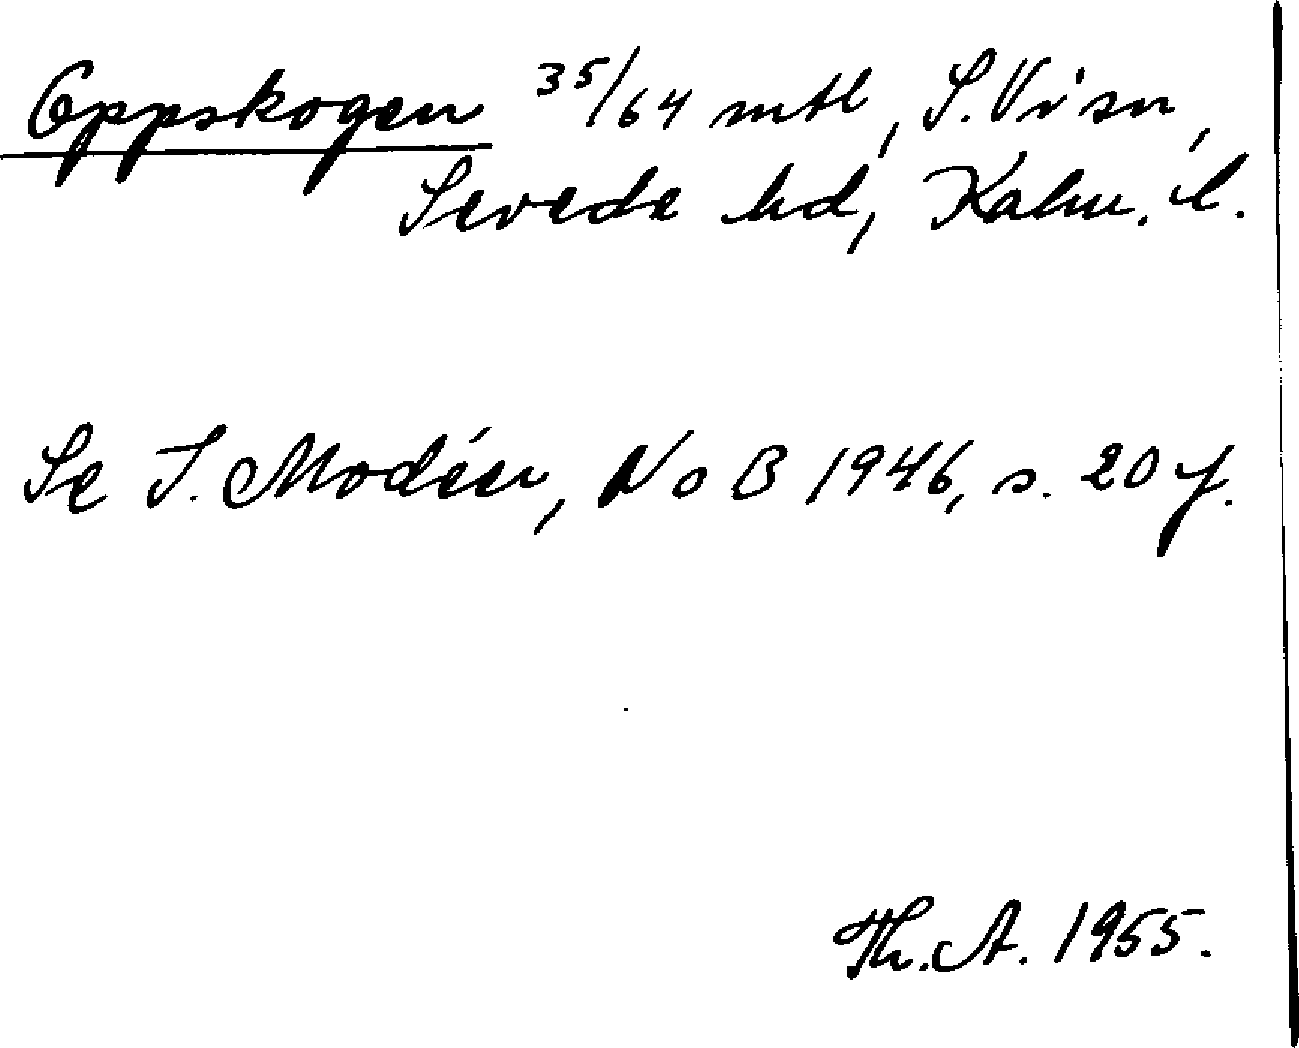 Oppskogen 35/64 mtl, S. Vi sn,
Sevede hd, Kalm. l.
Se I. Modéer, NoB 1946, s. 20 f.
Th. A. 1955.